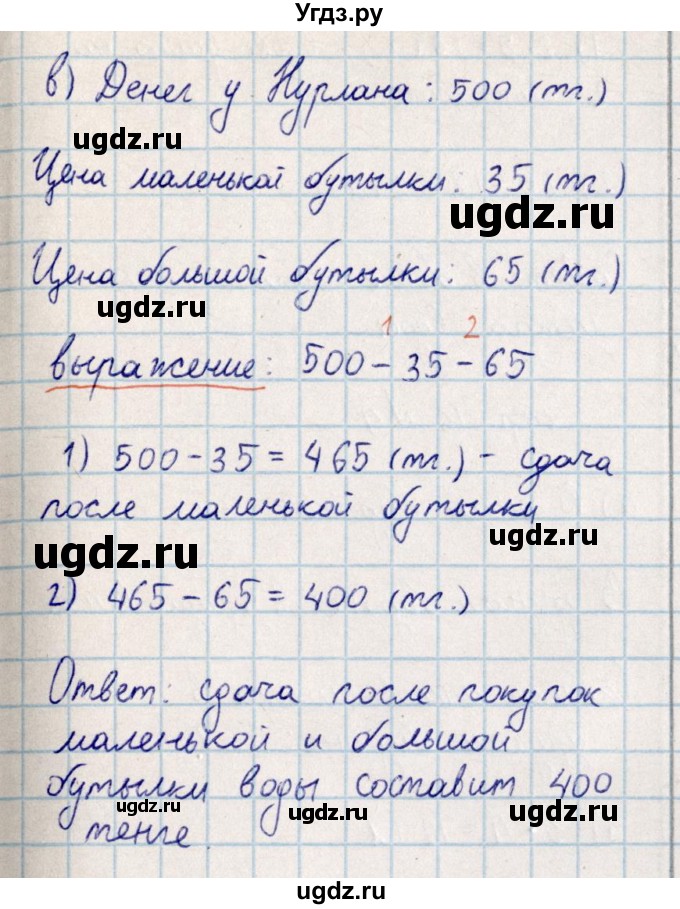 Угдз.ру
в) Денег у Нурлана: 500 (тг.)
ugdz.ru
Цена маленькой бутылки: 35 (тг.)
ugdz.ru
Цена большой бутылки: 65 (тг.)
ugdz.ru
1 2
выражение: 500 - 35 - 65
1) 500 - 35 = 465 (тг.) - сдача
после маленькой бутылки
ugdz.ru
ugdz.ru
2) 465 - 65 = 400 (тг.)
Ответ: сдача после покупок
маленькой и большой
бутылки воды составит 400
ugdz.ru ugdz.ru ugdz.ru
тенге.
ugdz.ru